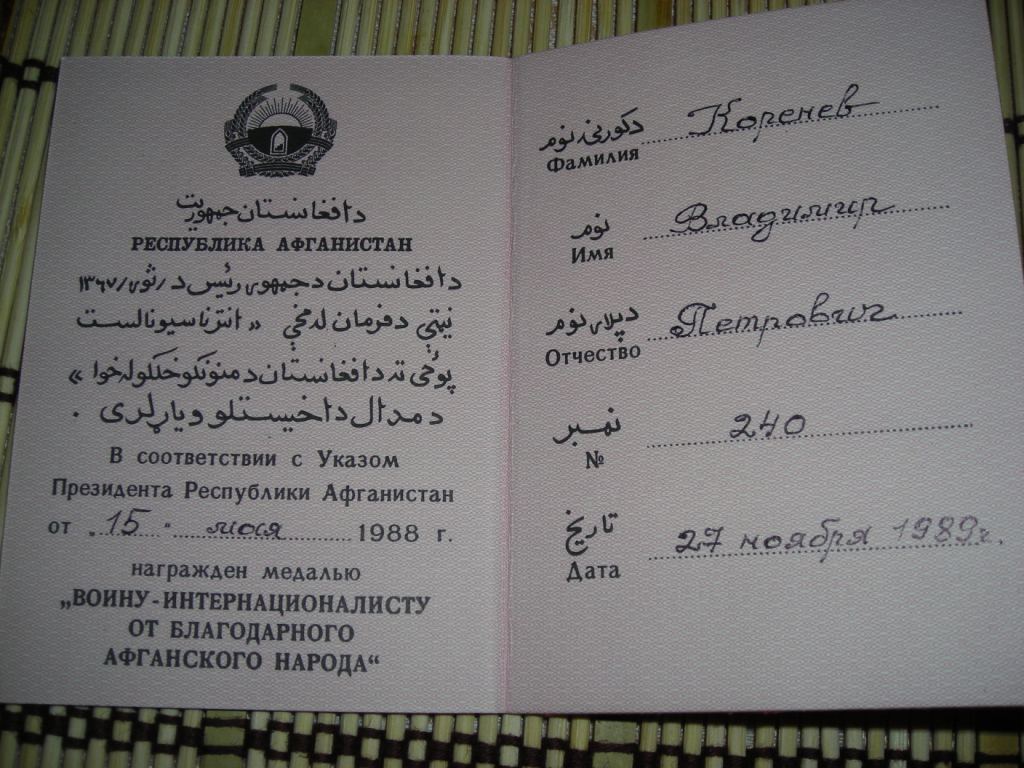 دافغانستان جمهوریت
РЕСПУБЛИКА АФГАНИСТАН
دافغانستان دجمهوری رئیس د /ثوی/ ۱۳۶۷
نیټې دفرمان له مخې « انترناسیونالست
پوځی ته دافغانستان دمنونکو خلکو له خوا »
دمدال داخیستلو ویاړلری .
В соответствии с Указом
Президента Республики Афганистан
от „15" мая 1988 г.
награжден медалью
„ВОИНУ-ИНТЕРНАЦИОНАЛИСТУ
ОТ БЛАГОДАРНОГО
АФГАНСКОГО НАРОДА“
دکورنۍ نوم Коренев
Фамилия
نوم Владимир
Имя
دپلار نوم Петрович
Отчество
نمبر 240
№
تاریخ 27 ноября 1989г.
Дата